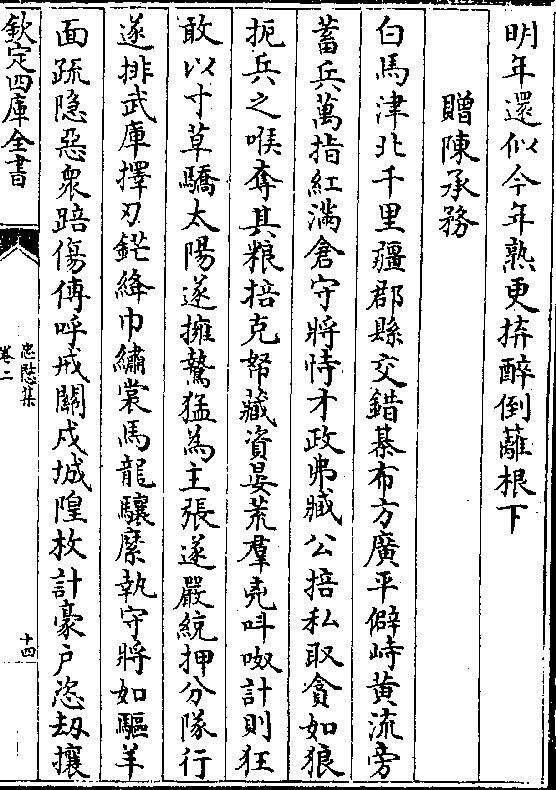 明年還似今年熟更拚醉倒蘺根下
贈陳承務
白馬津北千里疆郡縣交錯棊布方廣平僻峙黄流旁
蓄兵萬指紅滿倉守將恃才政弗臧公掊私取貪如狼
扼兵之喉奪其粮掊克帑藏資晏荒羣兇呌呶計則狂
敢以寸草驕太陽遂擁驁猛為主張遂嚴統押分隊行
遂排武庫擇刃鋩絳巾繡裳馬龍驤縻執守將如驅羊
面疏隐惡衆踣傷傳呼戒關戍城隍枚計豪户恣刼攘
欽定四庫全書
忠愍集
卷二
十四